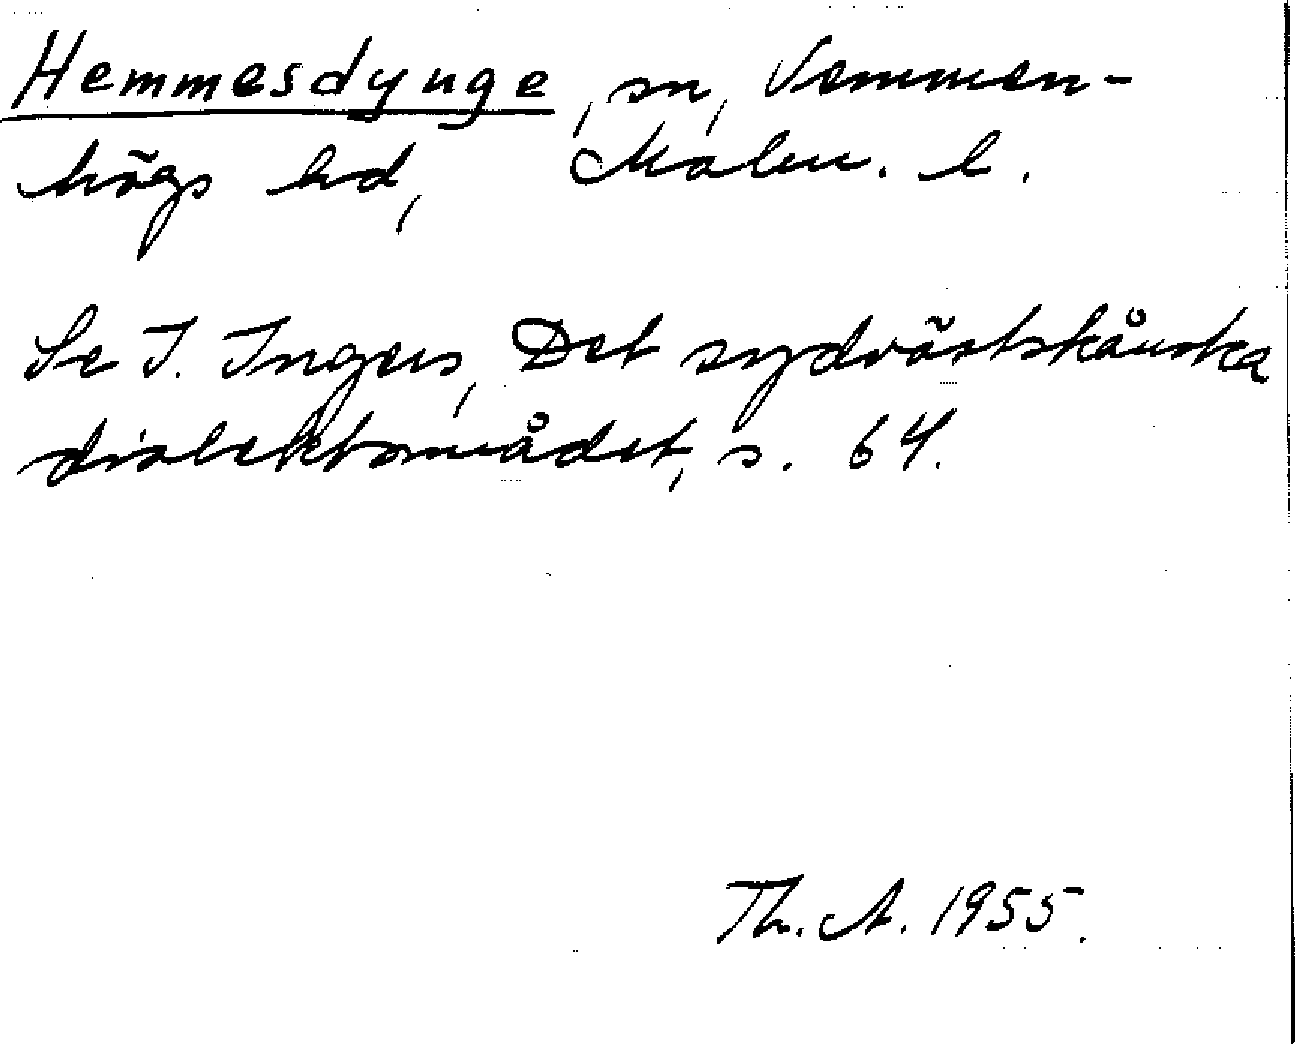 Hemmesdynge, sn, Vemmen-
högs hd, Malm. l.
Se I. Ingers, Det sydvästskånska
dialektområdet, s. 64.
Th. A. 1955.